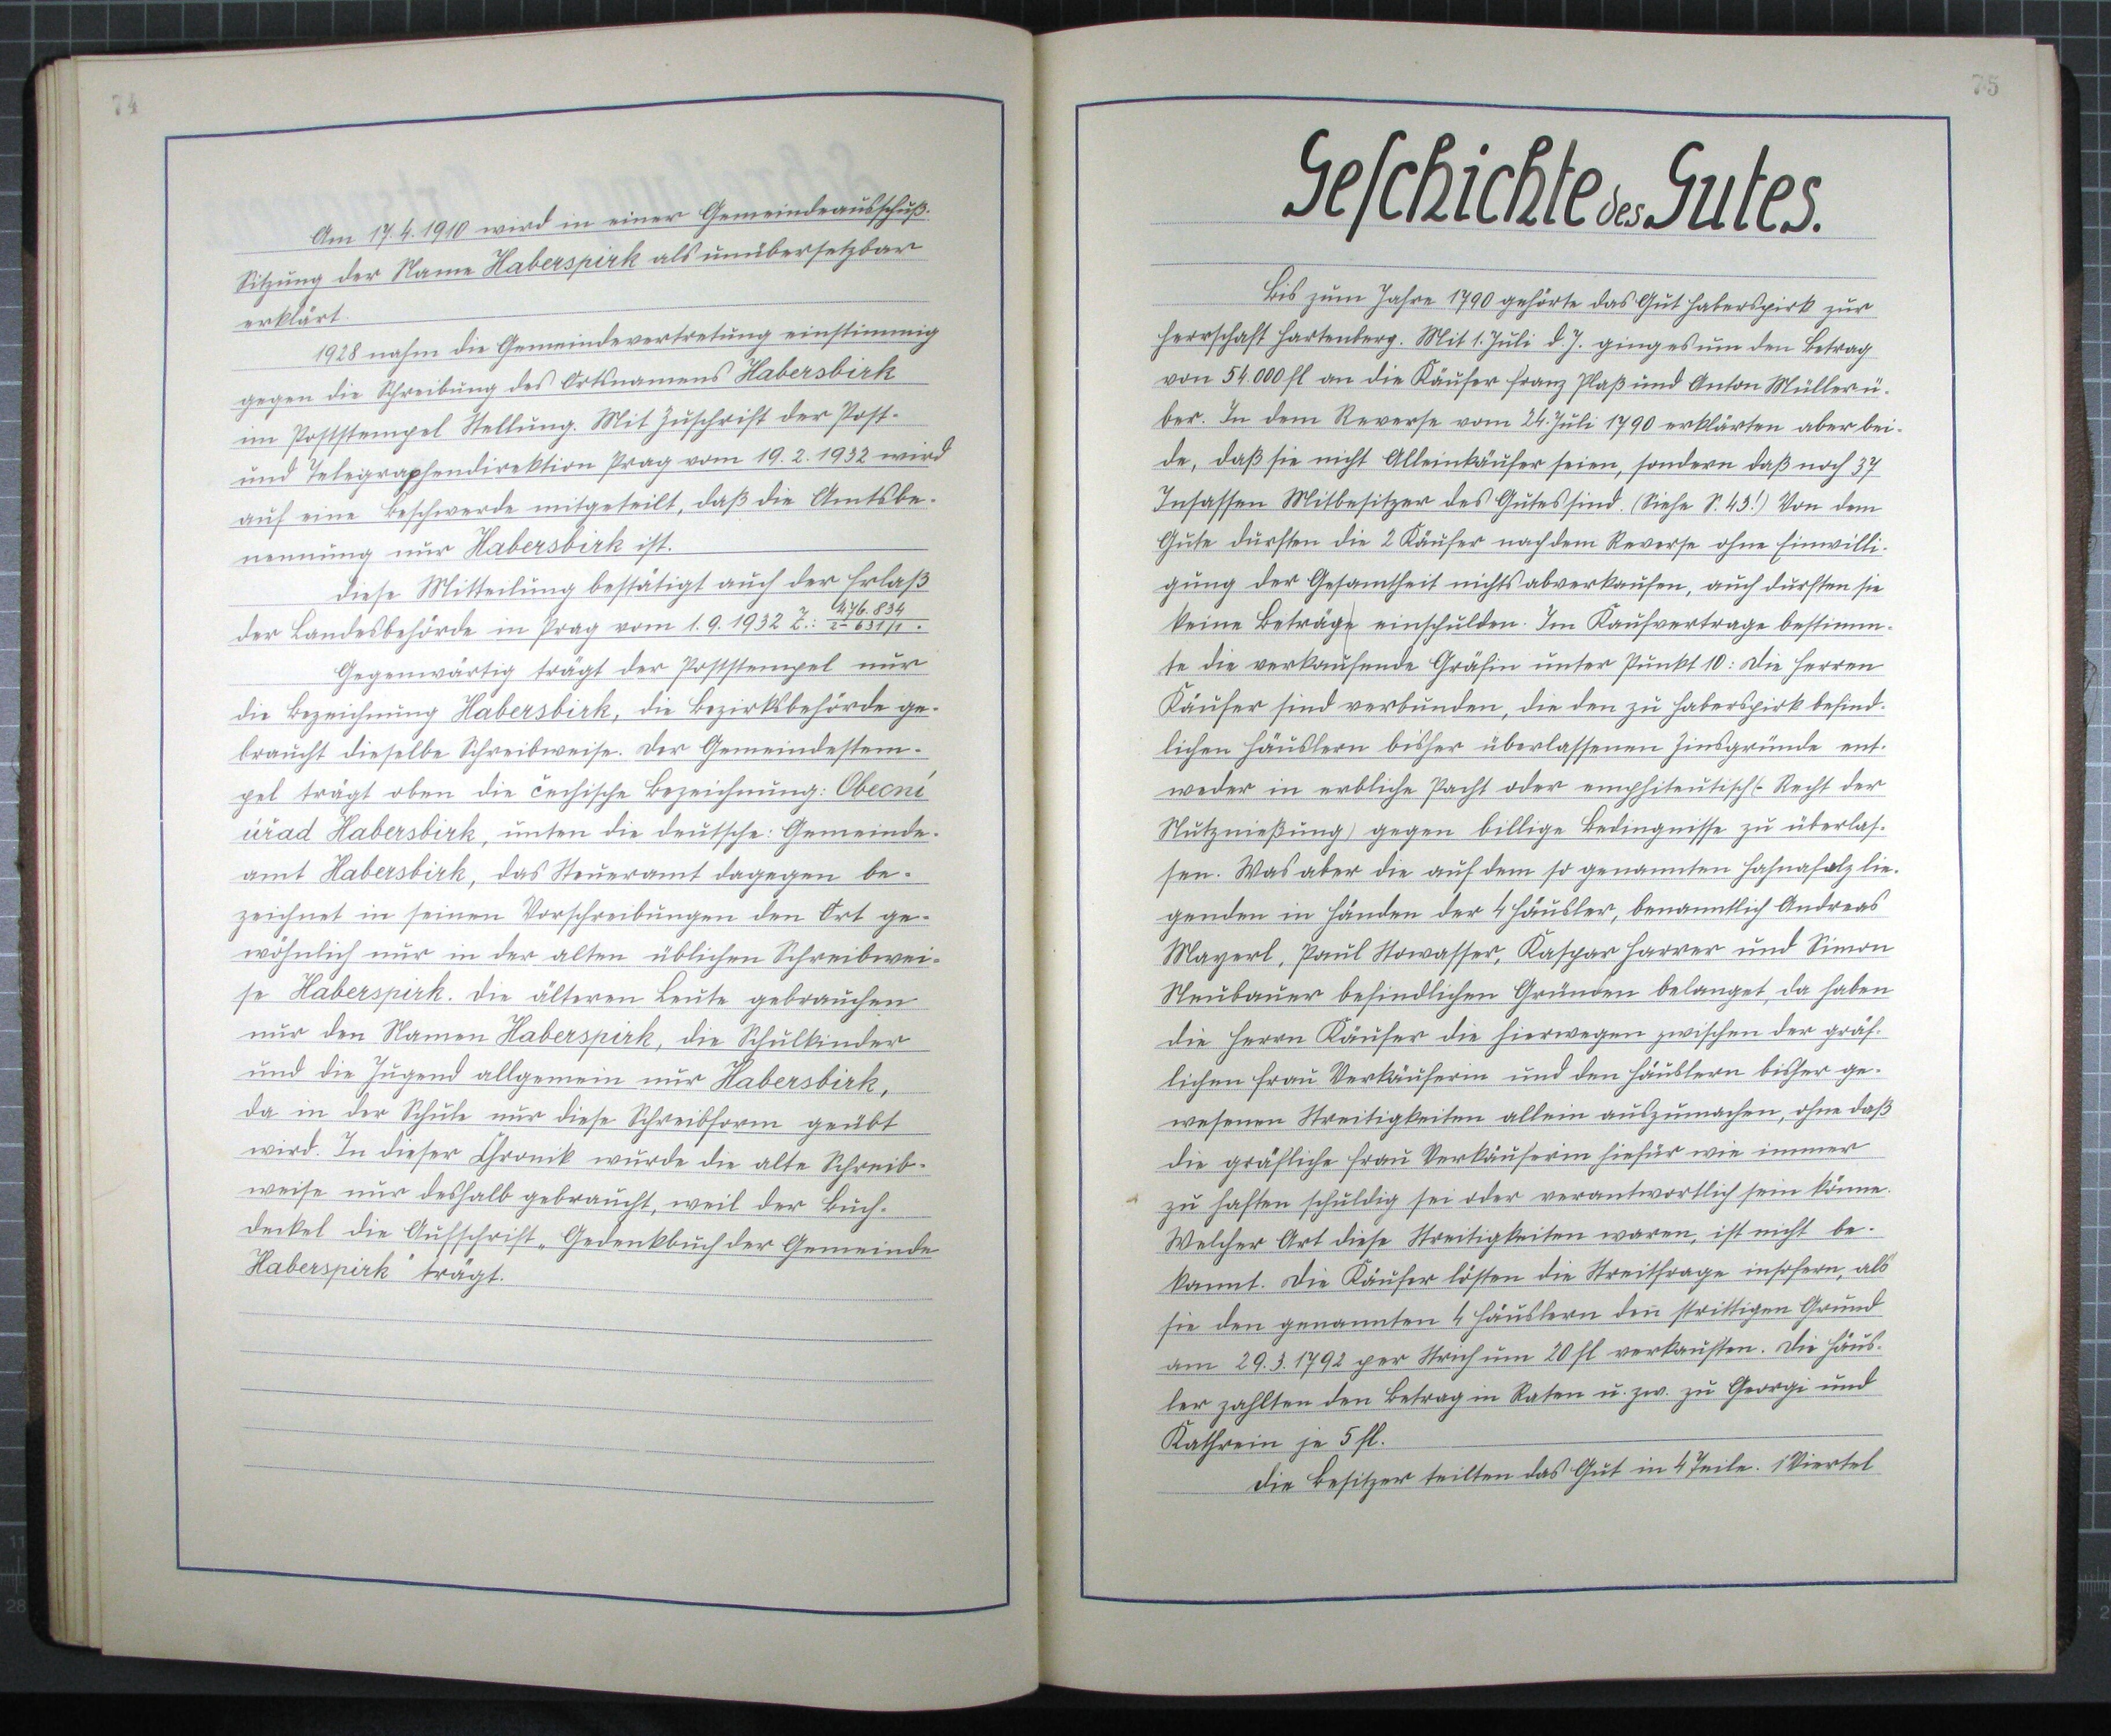 74
Am 17.4.1910 wird in einer Gemeindeausschuß-
Sitzung der Name Haberspirk als unübersetzbar
erklärt.
1928 nahm die Gemeindevertretung einstimmig
gegen die Schreibung des Ortsnamens Habersbirk
im Poststempel Stellung. Mit Zuschrift der Post-
und Telegraphendirektion Prag vom 19.2.1932 wird
auf eine Beschwerde mitgeteilt, daß die Amtsbe-
nennung nur Habersbirk ist.
Diese Mitteilung bestätigt auch der Erlaß
der Landesbehörde in Prag vom 1.9.1932 Z.: 476.834
2-631/1.
Gegenwärtig trägt der Poststempel nur
die Bezeichnung Habersbirk, die Bezirksbehörde ge-
braucht dieselbe Schreibweise. Der Gemeindestem-
pel trägt oben die čechische Bezeichnung: Obecní
úřad Habersbirk, unten die deutsche: Gemeinde-
amt Habersbirk, das Steueramt dagegen be-
zeichnet in seinen Vorschreibungen den Ort ge-
wöhnlich nur in der alten üblichen Schreibwei-
se Haberspirk. Die älteren Leute gebrauchen
nur den Namen Haberspirk, die Schulkinder
und die Jugend allgemein nur Habersbirk,
da in der Schule nur diese Schreibform geübt
wird. In dieser Chronik wurde die alte Schreib-
weise nur deshalb gebraucht, weil der Buch-
deckel die Aufschrift „Gedenkbuch der Gemeinde
Haberspirk" trägt.
75
Geschichte des Gutes.
Bis zum Jahre 1790 gehörte das Gut Haberspirk zur
Herrschaft Hartenberg. Mit 1. Juli d. J. ging es um den Betrag
von 54.000 fl an die Käufer Franz Plaß und Anton Müller ü-
ber. In dem Reverse vom 24. Juli 1790 erklärten aber bei-
de, daß sie nicht Alleinkäufer seien, sondern daß noch 37
Insassen Mitbesitzer des Gutes sind. (Siehe S. 43!) Von dem
Gute durften die 2 Käufer nach dem Reverse ohne Einwilli-
gung der Gesamtheit nichts abverkaufen, auch durften sie
keine Beträge einschulden. Im Kaufvertrage bestimm-
te die verkaufende Gräfin unter Punkt 10: Die Herren
Käufer sind verbunden, die den zu Haberspirk befind-
lichen Häuslern bisher überlassenen Zinsgründe ent-
weder in erbliche Pacht oder emphiteutisch (- Recht der
Nutznießung) gegen billige Bedingnisse zu überlas-
sen. Was aber die auf dem so genannten Hahnafalz lie-
genden in Händen der 4 Häusler, benanntlich Andreas
Mayerl, Paul Nowasser, Kaspar Harrer und Simon
Neubauer befindlichen Gründen belanget, da haben
die Herrn Käufer die hierwegen zwischen der gräf-
lichen Frau Verkäuferin und den Häuslern bisher ge-
wesenen Streitigkeiten allein auszumachen, ohne daß
die gräfliche Frau Verkäuferin hiefür wie immer
zu haften schuldig sei oder verantwortlich sein könne.
Welcher Art diese Streitigkeiten waren, ist nicht be-
kannt. Die Käufer lösten die Streitfrage insofern, als
sie den genannten 4 Häuslern den strittigen Grund
am 29.3.1792 per Strich um 20 fl verkauften. Die Häus-
ler zahlten den Betrag in Raten u. zw. zu Georgi und
Kathrein je 5 fl.
Die Besitzer teilten das Gut in 4 Teile. 1 Viertel